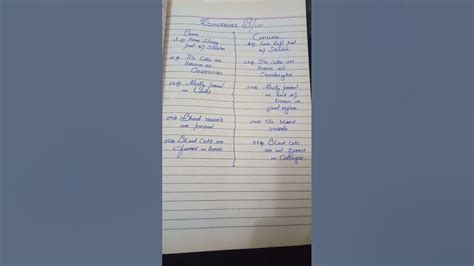 Difference B/w
Bone
01) Form Strong
part of Skeleton
02) The Cells are
known as
Osteocytes
03) Mostly found
in limbs
04) Blood vessels
are present
05) Blood Cells are
formed in bones
Cartilage
01) Form Soft part
of Skeleton
02) The Cells are
known as
Chondrocytes
03) Mostly found
in end of
bones in
joint region
04) No blood
vessels
05) Blood Cells
are not formed
in Cartilages